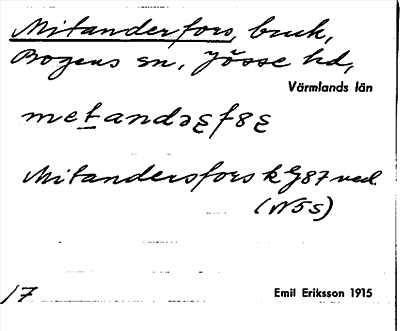 Mitanderfors, bruk,
Bogens sn, Jösse hd,
Värmlands län
Mitandersfors k G87 ved.
(N5s)
17
Emil Eriksson 1915